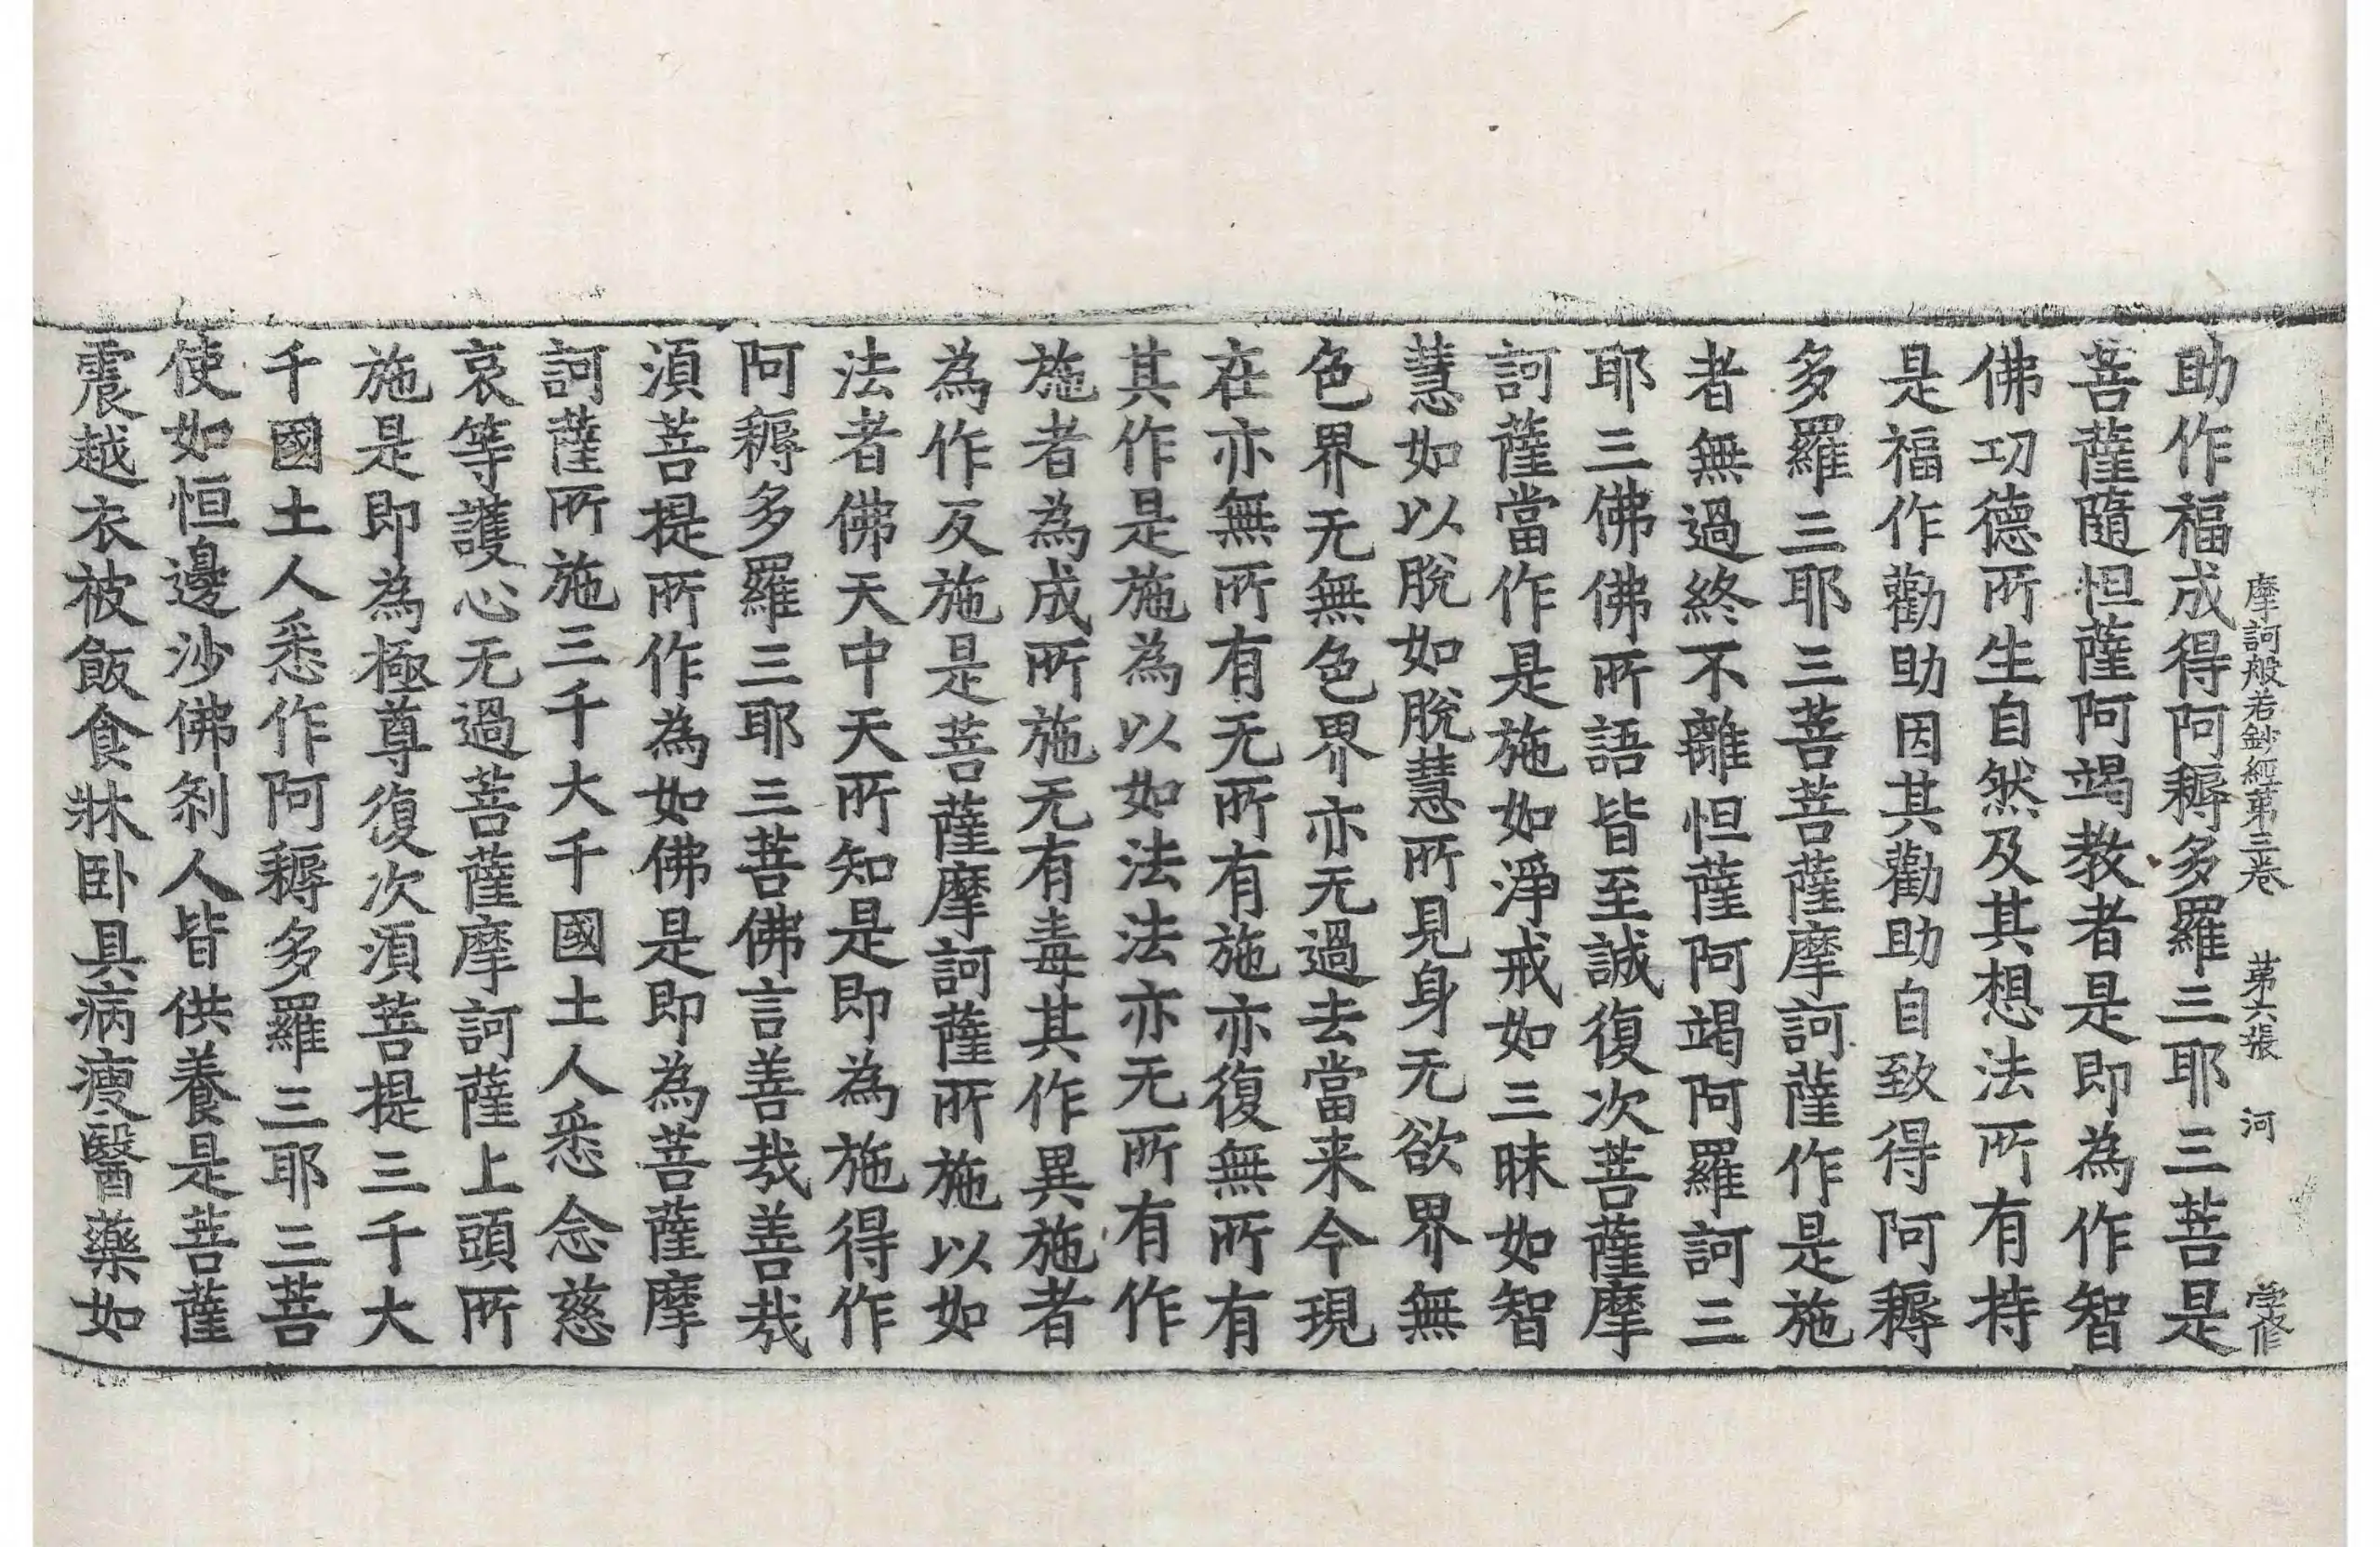 摩訶般若鈔經第三卷 第六張 河 学修
助作福成得阿耨多羅三耶三菩是
菩薩隨怛薩阿竭教者是即為作智
佛功德所生自然及其想法所有持
是福作勸助因其勸助自致得阿耨
多羅三耶三菩菩薩摩訶薩作是施
者無過終不離怛薩阿竭阿羅訶三
耶三佛佛所語皆至誠復次菩薩摩
訶薩當作是施如淨戒如三昧如智
慧如以脫如脫慧所見身无欲界無
色界无無色界亦无過去當来今現
在亦無所有无所有施亦復無所有
其作是施為以如法法亦无所有作
施者為成所施无有毒其作異施者
為作反施是菩薩摩訶薩所施以如
法者佛天中天所知是即為施得作
阿耨多羅三耶三菩佛言善哉善哉
須菩提所作為如佛是即為菩薩摩
訶薩所施三千大千國土人悉念慈
哀等護心无過菩薩摩訶薩上頭所
施是即為極尊復次須菩提三千大
千國土人悉作阿耨多羅三耶三菩
使如恒邊沙佛刹人皆供養是菩薩
震越衣被飯食牀卧具病瘦醫藥如